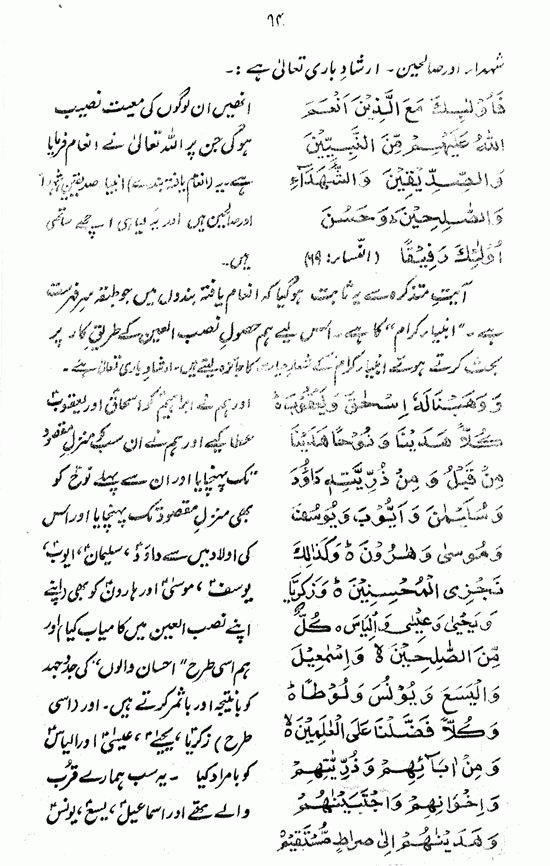 ۶۴
شہداء اور صالحین۔ ارشادِ باری تعالیٰ ہے :۔
فَاُولٰٓئِكَ مَعَ الَّذِيْنَ اَنْعَمَ
اللهُ عَلَيْهِمْ مِّنَ النَّبِيِّيْنَ
وَالصِّدِّيْقِيْنَ وَالشُّهَدَآءِ
وَالصّٰلِحِيْنَ ۚ وَحَسُنَ
اُولٰٓئِكَ رَفِيْقًا (النساء: ۶۹)
انھیں ان لوگوں کی معیت نصیب
ہوگی جن پر اللہ تعالیٰ نے انعام فرمایا
ہے۔ یہ (انعام یافتہ بندے) انبیاء صدیقین شہداء
اور صالحین ہیں اور یہ کیا ہی اچھے ساتھی
ہیں۔
آیتِ متذکرہ سے یہ ثابت ہوگیا کہ انعام یافتہ بندوں میں جو طبقہ سرِ فہرست
ہے۔ "انبیاء کرام" کا ہے۔ اس لیے ہم حصولِ نصب العین کے طریقِ کار پر
بحث کرتے ہوئے انبیاء کرام کے شعارِ حیات کا جائزہ لیتے ہیں۔ ارشادِ باری تعالیٰ ہے۔
وَوَهَبْنَا لَهٗٓ اِسْحٰقَ وَيَعْقُوْبَ ؕ
كُلًّا هَدَيْنَا وَنُوْحًا هَدَيْنَا
مِنْ قَبْلُ وَمِنْ ذُرِّيَّتِهٖ دَاوٗدَ
وَسُلَيْمٰنَ وَاَيُّوْبَ وَيُوْسُفَ
وَمُوْسٰى وَهٰرُوْنَ ؕ وَكَذٰلِكَ
نَجْزِى الْمُحْسِنِيْنَ ؕ وَزَكَرِيَّا
وَيَحْيٰى وَعِيْسٰى وَاِلْيَاسَ ؕ كُلٌّ
مِّنَ الصّٰلِحِيْنَ ۙ وَاِسْمٰعِيْلَ
وَالْيَسَعَ وَيُوْنُسَ وَلُوْطًا ؕ
وَكُلًّا فَضَّلْنَا عَلَى الْعٰلَمِيْنَ ۙ
وَمِنْ اٰبَآئِهِمْ وَذُرِّيّٰتِهِمْ
وَاِخْوَانِهِمْ وَاجْتَبَيْنٰهُمْ
وَهَدَيْنٰهُمْ اِلٰى صِرَاطٍ مُّسْتَقِيْمٍ
اور ہم نے ابراہیمؑ کو اسحاقؑ اور یعقوبؑ
عطا کیے اور ہم نے ان سب کو منزلِ مقصود
تک پہنچایا اور ان سے پہلے نوحؑ کو
بھی منزلِ مقصود تک پہنچایا اور اس
کی اولاد میں سے داؤدؑ، سلیمانؑ، ایوبؑ،
یوسفؑ، موسیٰؑ اور ہارونؑ کو بھی (اپنے
اپنے نصب العین میں کامیاب کیا) اور
ہم اسی طرح "احسان والوں" کی جدوجہد
کو بانتیجہ اور باثمر کرتے ہیں۔ اور (اسی
طرح) زکریاؑ، یحییٰؑ، عیسیٰؑ اور الیاسؑ
کو بامراد کیا۔ یہ سب ہمارے قرب
والے تھے اور اسماعیلؑ، یسعؑ، یونسؑ